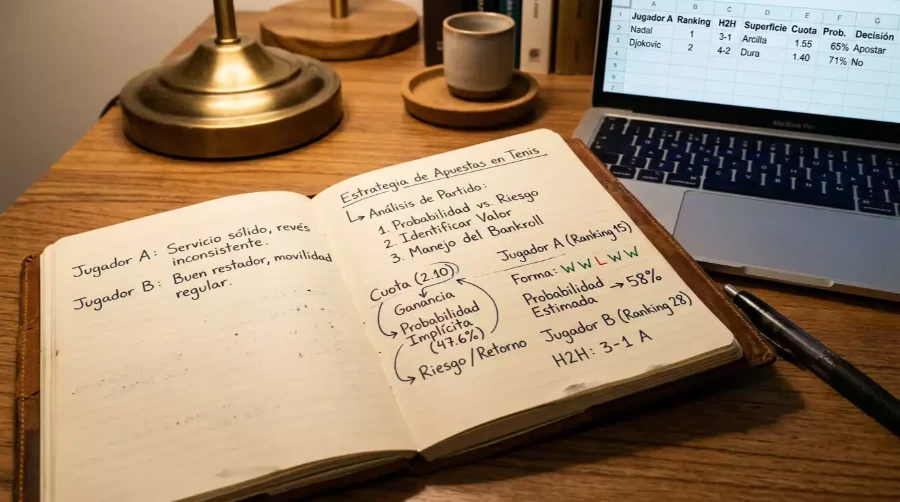 Jugador A: Servicio sólido, revés
inconsistente.
Jugador B: Buen restador, movilidad
regular.
Estrategia de Apuestas en Tenis
↳ Análisis de Partido:
1. Probabilidad vs. Riesgo
2. Identificar Valor
3. Manejo del Bankroll
Cuota (2.10)
Ganancia
Probabilidad
Implícita
(47.6%)
Riesgo/Retorno
Jugador A (Ranking 15)
Forma: W W L W W
Probabilidad
Estimada → 58%
Jugador B (Ranking 28)
H2H: 3-1 A
A B C D E F G
1 Jugador A Ranking H2H Superficie Cuota Prob. Decisión
2 Nadal 1 3-1 Arcilla 1.55 65% Apostar
3 Djokovic 2 4-2 Dura 1.40 71% No
4
MacBook Pro